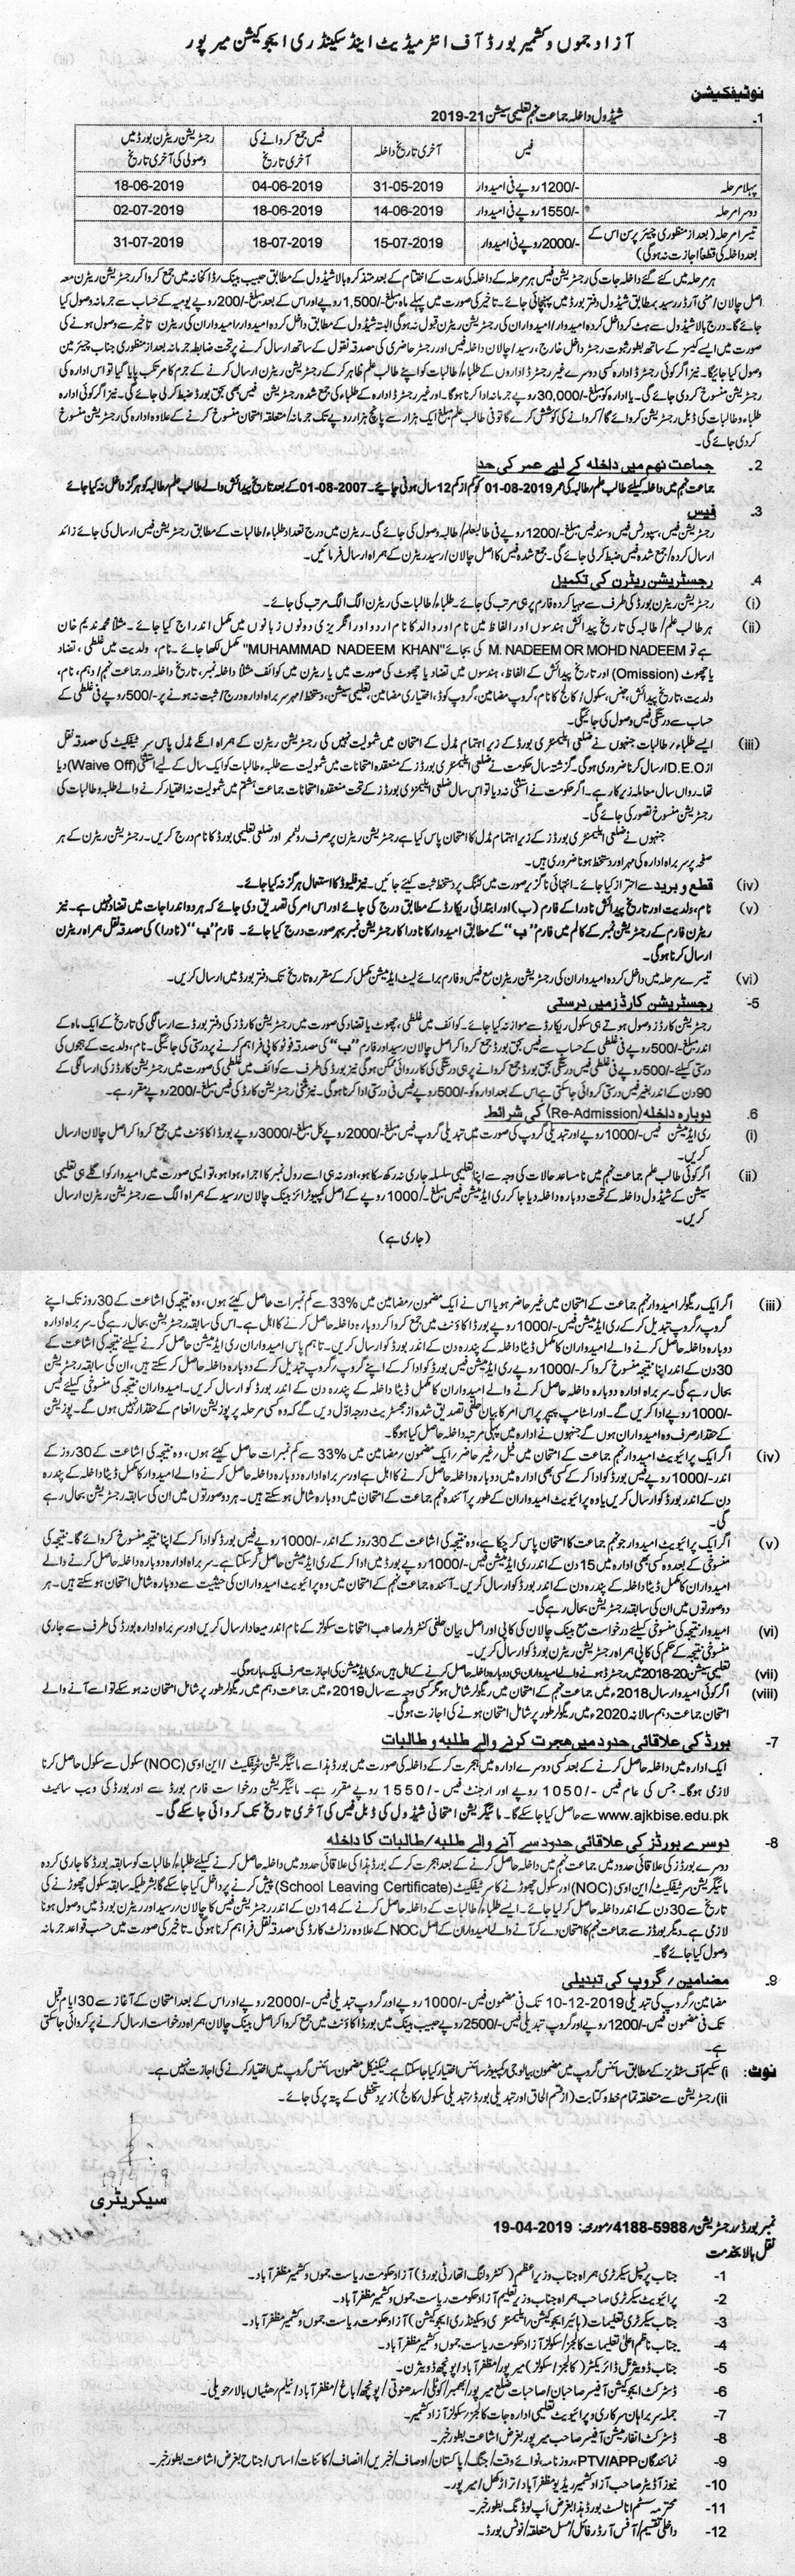 آزاد جموں و کشمیر بورڈ آف انٹرمیڈیٹ اینڈ سکینڈری ایجوکیشن میرپور
نوٹیفکیشن
1۔ شیڈول داخلہ جماعت نہم تعلیمی سیشن 21-2019
فیس آخری تاریخ داخلہ فیس جمع کروانے کی آخری تاریخ رجسٹریشن ریٹرن بورڈ میں وصولی کی آخری تاریخ
پہلا مرحلہ -/1200 روپے فی امیدوار 31-05-2019 04-06-2019 18-06-2019
دوسرا مرحلہ -/1550 روپے فی امیدوار 14-06-2019 18-06-2019 02-07-2019
تیسرا مرحلہ (بعد از منظوری چیئرپرسن اس کے بعد داخلہ کی قطعاً اجازت نہ ہوگی) -/2000 روپے فی امیدوار 15-07-2019 18-07-2019 31-07-2019
ہر مرحلہ میں کئے گئے داخلہ جات کی رجسٹریشن فیس ہر مرحلہ کے داخلہ کی مدت کے اختتام کے بعد متذکرہ بالا شیڈول کے مطابق حبیب بینک / ڈاکخانہ میں جمع کروا کر رجسٹریشن ریٹرن معہ
اصل چالان / منی آرڈر رسید بمطابق شیڈول دفتر بورڈ میں پہنچائی جائے۔ تاخیر کی صورت میں پہلے ماہ مبلغ -/1,500 روپے اور اس کے بعد مبلغ -/200 روپے یومیہ کے حساب سے جرمانہ وصول کیا
جائے گا۔ درج بالا شیڈول سے ہٹ کر داخل کردہ امیدوار / امیدواران کی رجسٹریشن ریٹرن قبول نہ ہوگی البتہ شیڈول کے مطابق داخل کردہ امیدوار / امیدواران کی ریٹرن تاخیر سے وصول ہونے کی
صورت میں ایسے کیسز کے ساتھ بطور ثبوت رجسٹر داخل خارج، رسید / چالان داخلہ فیس اور رجسٹر حاضری کی مصدقہ نقول کے ساتھ ارسال کرنے پر تحت ضابطہ جرمانہ بعد از منظوری جناب چیئرمین
وصول کیا جائیگا۔ نیز اگر کوئی رجسٹرڈ ادارہ کسی دوسرے غیر رجسٹرڈ اداروں کے طلباء / طالبات کو اپنے طالب علم ظاہر کر کے رجسٹریشن ریٹرن ارسال کرنے کے جرم کا مرتکب پایا گیا تو اس ادارہ کی
رجسٹریشن منسوخ کر دی جائے گی۔ یا ادارہ کو مبلغ -/30,000 روپے جرمانہ ادا کرنا ہوگا۔ اور غیر رجسٹرڈ ادارہ کے طلباء کی جمع شدہ رجسٹریشن فیس بھی بحق بورڈ ضبط کر لی جائے گی۔ نیز اگر کوئی ادارہ
طلباء و طالبات کی ڈبل رجسٹریشن کروائے گا / کروانے کی کوشش کرے گا تو فی طالب علم مبلغ ایک ہزار سے پانچ ہزار روپے تک جرمانہ / متعلقہ امتحان منسوخ کرنے کے علاوہ ادارہ کی رجسٹریشن منسوخ
کر دی جائے گی۔
2۔ جماعت نہم میں داخلہ کے لیے عمر کی حد
جماعت نہم میں داخلہ کیلئے طالب علم / طالبہ کی عمر 2019-08-01 کو کم از کم 12 سال ہونی چاہیے۔ 2007-08-01 کے بعد تاریخ پیدائش والے طالب علم / طالبہ کو ہرگز داخل نہ کیا جائے
3۔ فیس
رجسٹریشن فیس، سپورٹس فیس و سند فیس مبلغ -/1200 روپے فی طالبعلم / طالبہ وصول کی جائے گی۔ ریٹرن میں درج تعداد طلباء / طالبات کے مطابق رجسٹریشن فیس ارسال کی جائے زائد
ارسال کردہ / جمع شدہ فیس ضبط کر لی جائے گی۔ جمع شدہ فیس کا اصل چالان / رسید ریٹرن کے ہمراہ ارسال فرمائیں۔
4۔ رجسٹریشن ریٹرن کی تکمیل
(i) رجسٹریشن ریٹرن بورڈ کی طرف سے مہیا کردہ فارم پر ہی مرتب کی جائے۔ طلباء / طالبات کی ریٹرن الگ الگ مرتب کی جائے۔
(ii) ہر طالب علم / طالبہ کی تاریخ پیدائش ہندسوں اور الفاظ میں نام اور والد کا نام اردو اور انگریزی دونوں زبانوں میں مکمل اندراج کیا جائے۔ مثلاً محمد ندیم خان
ہے تو M. NADEEM OR MOHD NADEEM کی بجائے "MUHAMMAD NADEEM KHAN" مکمل لکھا جائے۔ نام، ولدیت میں غلطی، تضاد
یا چھوٹ (Omission) اور تاریخ پیدائش کے الفاظ، ہندسوں میں تضاد یا چھوٹ کی صورت میں یا ریٹرن میں کوائف مثلاً داخلہ نمبر، تاریخ داخلہ در جماعت نہم / دہم، نام،
ولدیت، تاریخ پیدائش، جنس، سکول / کالج کا نام، گروپ مضامین، گروپ کوڈ، اختیاری مضامین، تعلیمی سیشن، دستخط / مہر سربراہ ادارہ درج / ثبت نہ ہونے پر -/500 روپے فی غلطی کے
حساب سے درستگی فیس وصول کی جائیگی۔
(iii) ایسے طلباء / طالبات جنہوں نے ضلعی ایلیمنٹری بورڈ کے زیر اہتمام مڈل کے امتحان میں شمولیت نہیں کی رجسٹریشن ریٹرن کے ہمراہ انکے مڈل پاس سرٹیفکیٹ کی مصدقہ نقل
از D.E.O ارسال کرنا ضروری ہوگی۔ گزشتہ سال حکومت نے ضلعی ایلیمنٹری بورڈز کے منعقدہ امتحانات میں شمولیت سے طلبہ و طالبات کو ایک سال کے لیے استثنیٰ (Waive Off) دیا
تھا۔ رواں سال معاملہ زیر کار ہے۔ اگر حکومت نے استثنیٰ نہ دیا تو اس سال ضلعی ایلیمنٹری بورڈز کے تحت منعقدہ امتحانات جماعت ہشتم میں شمولیت نہ اختیار کرنے والے طلبہ و طالبات کی
رجسٹریشن منسوخ تصور کی جائے گی۔
جنہوں نے ضلعی ایلیمنٹری بورڈز کے زیر اہتمام مڈل کا امتحان پاس کیا ہے رجسٹریشن ریٹرن پر صرف رولنمبر اور ضلعی تعلیمی بورڈ کا نام درج کریں۔ رجسٹریشن ریٹرن کے ہر
صفحہ پر سربراہ ادارہ کی مہر اور دستخط ہونا ضروری ہیں۔
(iv) قطع و برید سے احتراز کیا جائے۔ انتہائی ناگزیر صورت میں کٹنگ پر دستخط ثبت کیئے جائیں۔ نیز فلیوڈ کا استعمال ہرگز نہ کیا جائے۔
(v) نام، ولدیت اور تاریخ پیدائش نادرا کے فارم (ب) اور ابتدائی ریکارڈ کے مطابق درج کی جائے اور اس امر کی تصدیق دی جائے کہ ہر دو اندراجات میں تضاد نہیں ہے۔ نیز
ریٹرن فارم کے رجسٹریشن نمبر کے کالم میں فارم "ب" کے مطابق امیدوار کا نادرا کا رجسٹریشن نمبر بہر صورت درج کیا جائے۔ فارم "ب" (نادرا) کی مصدقہ نقل ہمراہ ریٹرن
ارسال کرنا ہوگی۔
(vi) تیسرے مرحلہ میں داخل کردہ امیدواران کی رجسٹریشن ریٹرن مع فیس و فارم برائے لیٹ ایڈمیشن مکمل کر کے مقررہ تاریخ تک دفتر بورڈ میں ارسال کریں۔
5- رجسٹریشن کارڈز میں درستی
رجسٹریشن کارڈز وصول ہوتے ہی سکول ریکارڈ سے موازنہ کیا جائے۔ کوائف میں غلطی، چھوٹ یا تضاد کی صورت میں رجسٹریشن کارڈز کی دفتر بورڈ سے ارسالگی کی تاریخ کے ایک ماہ کے
اندر مبلغ -/500 روپے فی غلطی کے حساب سے فیس بحق بورڈ جمع کروا کر اصل چالان رسید اور فارم "ب" کی مصدقہ فوٹو کاپی فراہم کرنے پر درستی کی جائیگی۔ نام، ولدیت کے ہجوں کی
درستی کیلئے -/500 روپے فی غلطی فیس درستگی بحق بورڈ جمع کروانے پر ہی درستگی کی کارروائی ممکن ہوگی نیز بورڈ کی طرف سے کوائف میں غلطی کی صورت میں رجسٹریشن کارڈز کی ارسالگی کے
90 دن کے اندر بغیر فیس درستی کروائی جا سکتی ہے اس کے بعد ادارہ کو -/500 روپے فیس فی درستی ادا کرنا ہوگا۔ نیز مثنیٰ رجسٹریشن کارڈ کی فیس مبلغ -/200 روپے مقرر ہے۔
6۔ دوبارہ داخلہ (Re-Admission) کی شرائط
(i) ری ایڈمیشن فیس -/1000 روپے اور تبدیلی گروپ کی صورت میں تبدیلی گروپ فیس مبلغ -/2000 روپے کل مبلغ -/3000 روپے بورڈ اکاؤنٹ میں جمع کروا کر اصل چالان ارسال
کریں۔
(ii) اگر کوئی طالب علم جماعت نہم میں نامساعد حالات کی وجہ سے اپنا تعلیمی سلسلہ جاری نہ رکھ سکا ہو، اور نہ ہی اسے رول نمبر کا اجراء ہوا ہو، تو ایسی صورت میں امیدوار کو اگلے ہی تعلیمی
سیشن کے شیڈول داخلہ کے تحت دوبارہ داخلہ دیا جا کر ری ایڈمیشن فیس مبلغ -/1000 روپے کے اصل کمپیوٹرائزڈ بینک چالان / رسید کے ہمراہ الگ سے رجسٹریشن ریٹرن ارسال
کریں۔
(جاری ہے)
(iii) اگر ایک ریگولر امیدوار نہم جماعت کے امتحان میں غیر حاضر ہو یا اس نے ایک مضمون / مضامین میں 33% سے کم نمبرات حاصل کیئے ہوں، وہ نتیجہ کی اشاعت کے 30 روز تک اپنے
گروپ / گروپ تبدیل کر کے ری ایڈمیشن فیس -/1000 روپے بورڈ اکاؤنٹ میں جمع کروا کر دوبارہ داخلہ حاصل کرنے کا اہل ہے۔ اس کی سابقہ رجسٹریشن بحال رہے گی۔ سربراہ ادارہ
دوبارہ داخلہ حاصل کرنے والے امیدواران کا مکمل ڈیٹا داخلہ کے پندرہ دن کے اندر بورڈ کو ارسال کریں۔ تاہم پاس امیدواران ری ایڈمیشن حاصل کرنے کیلئے نتیجہ کی اشاعت کے
30 دن کے اندر اپنا نتیجہ منسوخ کروا کر -/1000 روپے ری ایڈمیشن فیس بورڈ کو ادا کر کے اپنے گروپ / گروپ تبدیل کر کے دوبارہ داخلہ حاصل کر سکتے ہیں، ان کی سابقہ رجسٹریشن
بحال رہے گی۔ سربراہ ادارہ دوبارہ داخلہ حاصل کرنے والے امیدواران کا مکمل ڈیٹا داخلہ کے پندرہ دن کے اندر بورڈ کو ارسال کریں۔ امیدواران نتیجہ کی منسوخی کیلئے فیس
-/1000 روپے ادا کریں گے۔ اور اسٹامپ پیپر پر اس امر کا بیان حلفی تصدیق شدہ از مجسٹریٹ درجہ اول دیں گے کہ وہ کسی مرحلہ پر پوزیشن / انعام کے حقدار نہیں ہوں گے۔ پوزیشن
کے حقدار صرف وہ امیدواران ہوں گے جنہوں نے ادارہ میں پہلی مرتبہ داخلہ حاصل کیا ہوگا۔
(iv) اگر ایک پرائیویٹ امیدوار نہم جماعت کے امتحان میں فیل / غیر حاضر / ایک مضمون / مضامین میں 33% سے کم نمبرات حاصل کیئے ہوں، وہ نتیجہ کی اشاعت کے 30 روز کے
اندر -/1000 روپے فیس بورڈ کو ادا کر کے کسی بھی ادارہ میں دوبارہ داخلہ حاصل کرنے کا اہل ہے اور سربراہ ادارہ دوبارہ داخلہ حاصل کرنے والے امیدوار کا مکمل ڈیٹا داخلہ کے پندرہ
دن کے اندر بورڈ کو ارسال کریں یا وہ پرائیویٹ امیدواران کے طور پر آئندہ نہم جماعت کے امتحان میں دوبارہ شامل ہو سکتے ہیں۔ ہر دو صورتوں میں ان کی سابقہ رجسٹریشن بحال رہے
گی۔
(v) اگر ایک پرائیویٹ امیدوار جو نہم جماعت کا امتحان پاس کر چکا ہے، وہ نتیجہ کی اشاعت کے 30 روز کے اندر -/1000 روپے فیس بورڈ کو ادا کر کے اپنا نتیجہ منسوخ کروائے گا۔ نتیجہ کی
منسوخی کے بعد وہ کسی بھی ادارہ میں 15 دن کے اندر ری ایڈمیشن فیس -/1000 روپے بورڈ میں ادا کر کے ری ایڈمیشن حاصل کر سکتا ہے۔ سربراہ ادارہ دوبارہ داخلہ حاصل کرنے والے
امیدواران کا مکمل ڈیٹا داخلہ کے پندرہ دن کے اندر بورڈ کو ارسال کریں۔ آئندہ جماعت نہم کے امتحان میں وہ پرائیویٹ امیدواران کی حیثیت سے دوبارہ شامل امتحان ہو سکتے ہیں۔ ہر
دو صورتوں میں ان کی سابقہ رجسٹریشن بحال رہے گی۔
(vi) امیدوار نتیجہ کی منسوخی کیلئے درخواست مع بینک چالان کی کاپی اور اصل بیان حلفی کنٹرولر صاحب امتحانات سکولز کے نام اندر میعاد ارسال کریں اور سربراہ ادارہ بورڈ کی طرف سے جاری
منسوخی نتیجہ کے حکم کی کاپی ہمراہ رجسٹریشن ریٹرن بورڈ کو ارسال کریں۔
(vii) تعلیمی سیشن 20-2018 میں رجسٹرڈ ہونے والے امیدواران ہی دوبارہ داخلہ حاصل کرنے کے اہل ہیں، ری ایڈمیشن کی اجازت صرف ایک بار ہوگی۔
(viii) اگر کوئی امیدوار سال 2018ء میں جماعت نہم کے امتحان میں ریگولر شامل ہو مگر کسی وجہ سے سال 2019ء میں جماعت دہم میں ریگولر طور پر شامل امتحان نہ ہو سکے تو اسے آنے والے
امتحان جماعت دہم سالانہ 2020ء میں ریگولر طور پر شامل امتحان ہونے کی اجازت ہوگی۔
7- بورڈ کی علاقائی حدود میں ہجرت کرنے والے طلبہ و طالبات
ایک ادارہ میں داخلہ حاصل کرنے کے بعد کسی دوسرے ادارہ میں ہجرت کر کے داخلہ کی صورت میں بورڈ ہذا سے مائیگریشن سرٹیفکیٹ / این او سی (NOC) سکول سے سکول حاصل کرنا
لازمی ہوگا۔ جس کی عام فیس -/1050 روپے اور ارجنٹ فیس -/1550 روپے مقرر ہے۔ مائیگریشن درخواست فارم بورڈ سے اور بورڈ کی ویب سائیٹ
www.ajkbise.edu.pk سے حاصل کیا جا سکے گا۔ مائیگریشن امتحانی شیڈول کی ڈبل فیس کی آخری تاریخ تک کروائی جا سکے گی۔
8- دوسرے بورڈز کی علاقائی حدود سے آنے والے طلبہ / طالبات کا داخلہ
دوسرے بورڈز کی علاقائی حدود میں جماعت نہم میں داخلہ حاصل کرنے کے بعد ہجرت کر کے بورڈ ہذا کی علاقائی حدود میں داخلہ حاصل کرنے کیلئے طلباء / طالبات کو سابقہ بورڈ کا جاری کردہ
مائیگریشن سرٹیفکیٹ / این او سی (NOC) اور سکول چھوڑنے کا سرٹیفکیٹ (School Leaving Certificate) پیش کرنے پر داخل کیا جا سکے گا بشرطیکہ سابقہ سکول چھوڑنے کی
تاریخ سے 30 دن کے اندر داخلہ حاصل کر لیا جائے۔ ایسے طلباء / طالبات کے داخلہ حاصل کرنے کے 14 دن کے اندر رجسٹریشن فیس کا چالان / رسید اور ریٹرن بورڈ میں وصول ہونا
لازمی ہے۔ دیگر بورڈز سے جماعت نہم کا امتحان دے کر آنے والے امیدواران کے اصل NOC کے علاوہ رزلٹ کارڈ کی مصدقہ نقل فراہم کرنا ہوگی۔ تاخیر کی صورت میں حسب قواعد جرمانہ
وصول کیا جائے گا۔
9۔ مضامین / گروپ کی تبدیلی
مضامین / گروپ کی تبدیلی 2019-12-10 تک فی مضمون فیس -/1000 روپے اور گروپ تبدیلی فیس -/2000 روپے اور اس کے بعد امتحان کے آغاز سے 30 ایام قبل
تک فی مضمون فیس -/1200 روپے اور گروپ تبدیلی فیس -/2500 روپے حبیب بینک میں بورڈ اکاؤنٹ میں جمع کروا کر اصل بینک چالان ہمراہ درخواست ارسال کرنے پر کروائی جا سکتی
ہے۔
نوٹ: i) سکیم آف سٹڈیز کے مطابق سائنس گروپ میں مضمون بیالوجی / کمپیوٹر سائنس اختیار کیا جا سکتا ہے۔ ٹیکنیکل مضمون سائنس گروپ میں اختیار کرنے کی اجازت نہیں ہے۔
ii) رجسٹریشن سے متعلقہ تمام خط و کتابت (از قسم الحاق اور تبدیلی بورڈ / تبدیلی سکول / کالج) زیر دستخطی کے پتہ پر کی جائے۔
سیکریٹری
نمبر بورڈ / رجسٹریشن / 4188-5988 / مورخہ: 19-04-2019
نقل بالا بخدمت
1- جناب پرنسپل سیکرٹری ہمراہ جناب وزیر اعظم (کنٹرولنگ اتھارٹی بورڈ) آزاد حکومت ریاست جموں و کشمیر مظفرآباد۔
2- پرائیویٹ سیکرٹری صاحب ہمراہ جناب وزیر تعلیم آزاد حکومت ریاست جموں و کشمیر مظفرآباد۔
3- جناب سیکرٹری تعلیمات (ہائیر ایجوکیشن / ایلیمنٹری و سیکنڈری ایجوکیشن) آزاد حکومت ریاست جموں و کشمیر مظفرآباد۔
4- جناب ناظم اعلیٰ تعلیمات کالجز / سکولز آزاد حکومت ریاست جموں و کشمیر مظفرآباد۔
5- جناب ڈویژنل ڈائریکٹر (کالجز / سکولز) میرپور / مظفرآباد / پونچھ ڈویژن۔
6- ڈسٹرکٹ ایجوکیشن آفیسر صاحبان / صاحبات ضلع میرپور / بھمبر / کوٹلی / سدھنوتی / پونچھ / باغ / مظفرآباد / نیلم / ہٹیاں بالا / حویلی۔
7- جملہ سربراہان سرکاری و پرائیویٹ تعلیمی ادارہ جات کالجز / سکولز آزاد کشمیر۔
8- ڈسٹرکٹ انفارمیشن آفیسر صاحب میرپور بغرض اشاعت بطور خبر۔
9- نمائندگان PTV/APP، روزنامہ نوائے وقت / جنگ / پاکستان / اوصاف / خبریں / انصاف / کائنات / اساس / جناح بغرض اشاعت بطور خبر۔
10- نیوز ایڈیٹر صاحب آزاد کشمیر ریڈیو مظفرآباد / تراڑکھل / میرپور۔
11- محترمہ سسٹم انالسٹ بورڈ ہذا بغرض اپ لوڈنگ بطور خبر۔
12- داخلی تقسیم / آفس آرڈر فائل / مسل متعلقہ / نوٹس بورڈ۔